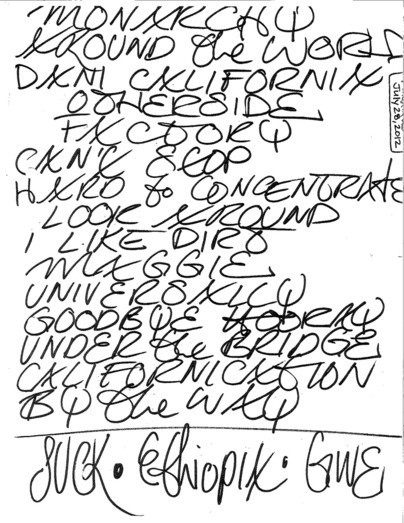 MONARCHY
AROUND the WORLD
July 28, 2012
DANI CALIFORNIA
OTHERSIDE
FACTORY
CAN'T STOP
HARD to CONCENTRATE
LOOK AROUND
I LIKE DIRT
MAGGIE
UNIVERSALLY
GOODBYE HOORAY
UNDER the BRIDGE
CALIFORNICATION
BY the WAY
SUCK • Ethiopia • GIVE